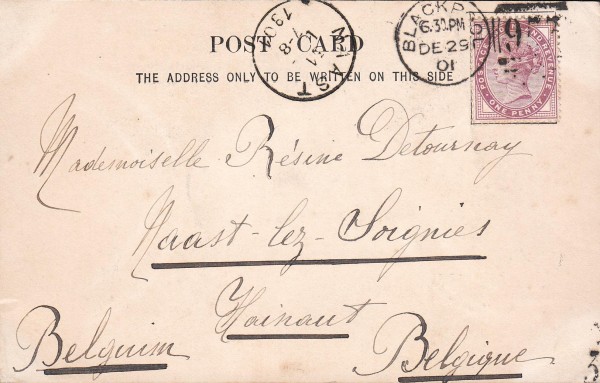 POST CARD
THE ADDRESS ONLY TO BE WRITTEN ON THIS SIDE
NAAST
1901
BLACKPOOL
6.30PM
DE 29
01
POSTAGE AND REVENUE
ONE PENNY
Mademoiselle Résine Detournay
Naast-lez-Soignies
Hainaut
Belguim Belgique